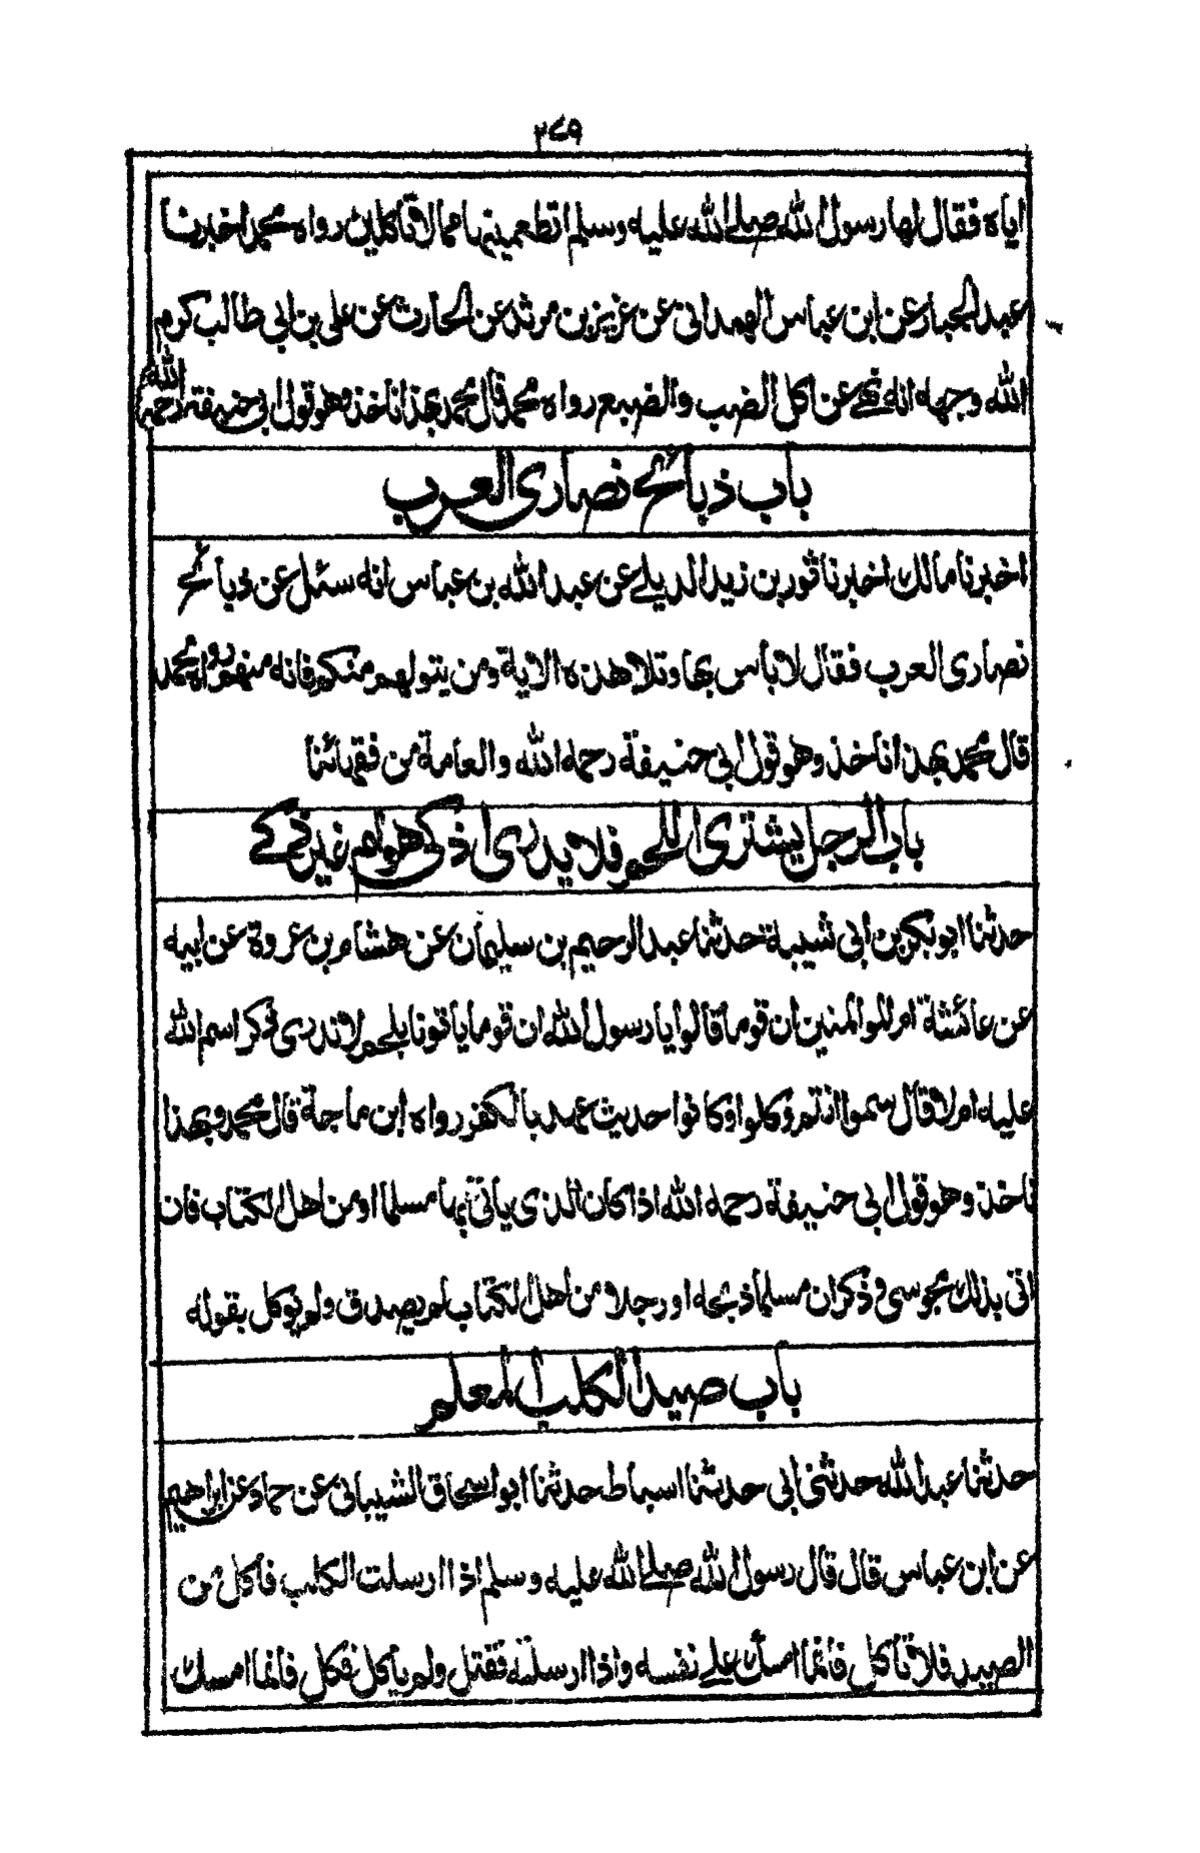 ٢٧٩
اياه فقال لها رسول الله صلى الله عليه وسلم اتطعمينها مما لا تاكلين رواه محمد اخبرنا
عبد الجبار عن ابن عباس الهمدانى عن عزيز بن مرثد عن الحارث عن على بن ابى طالب كرم
الله وجهه انه نهى عن اكل الضب والضبع رواه محمد قال محمد بهذا ناخذ وهو قول ابى حنيفة رحمه الله
باب ذبائح نصارى العرب
اخبرنا مالك اخبرنا ثور بن زيد الديلى عن عبد الله بن عباس انه سئل عن ذبائح
نصارى العرب فقال لا باس بها وتلا هذه الاية ومن يتولهم منكم فانه منهم رواه محمد
قال محمد بهذا ناخذ وهو قول ابى حنيفة رحمه الله والعامة من فقهائنا
باب الرجل يشترى اللحم فلا يدرى اذكى هو ام غير ذكى
حدثنا ابو بكر بن ابى شيبة حدثنا عبد الرحيم بن سليمان عن هشام بن عروة عن ابيه
عن عائشة ام المومنين ان قوما قالوا يا رسول الله ان قوما ياتونا بلحم لا ندرى ذكر اسم الله
عليه ام لا قال سموا انتم وكلوا وكانوا حديث عهد بالكفر رواه ابن ماجة قال محمد وبهذا
ناخذ وهو قول ابى حنيفة رحمه الله اذا كان الذى ياتى بها مسلما او من اهل الكتاب فان
اتى بذلك مجوسى وذكر ان مسلما ذبحه او رجلا من اهل الكتاب لم يصدق ولم يوكل بقوله
باب صيد الكلب المعلم
حدثنا عبد الله حدثنى ابى حدثنا اسباط حدثنا ابو اسحاق الشيبانى عن حماد عن ابراهيم
عن ابن عباس قال قال رسول الله صلى الله عليه وسلم اذا ارسلت الكلب فاكل من
الصيد فلا تاكل فانما امسك على نفسه واذا ارسلته فقتل ولم ياكل فكل فانما امسك